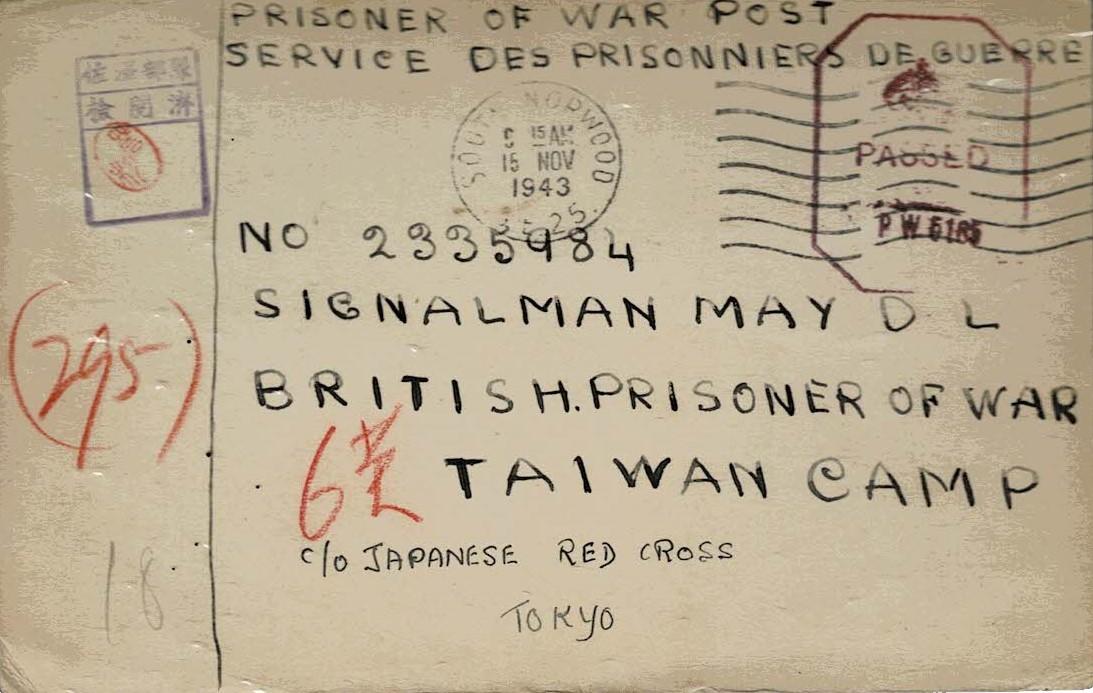 PRISONER OF WAR POST
SERVICE DES PRISONNIERS DE GUERRE
檢閲濟
SOUTH NORWOOD
15 AM
15 NOV
1943
S.E.25.
PASSED
P.W. 5185
NO 2335984
SIGNALMAN MAY D L
BRITISH.PRISONER OF WAR
(295)
6
TAIWAN CAMP
c/o JAPANESE RED CROSS
18
TOKYO